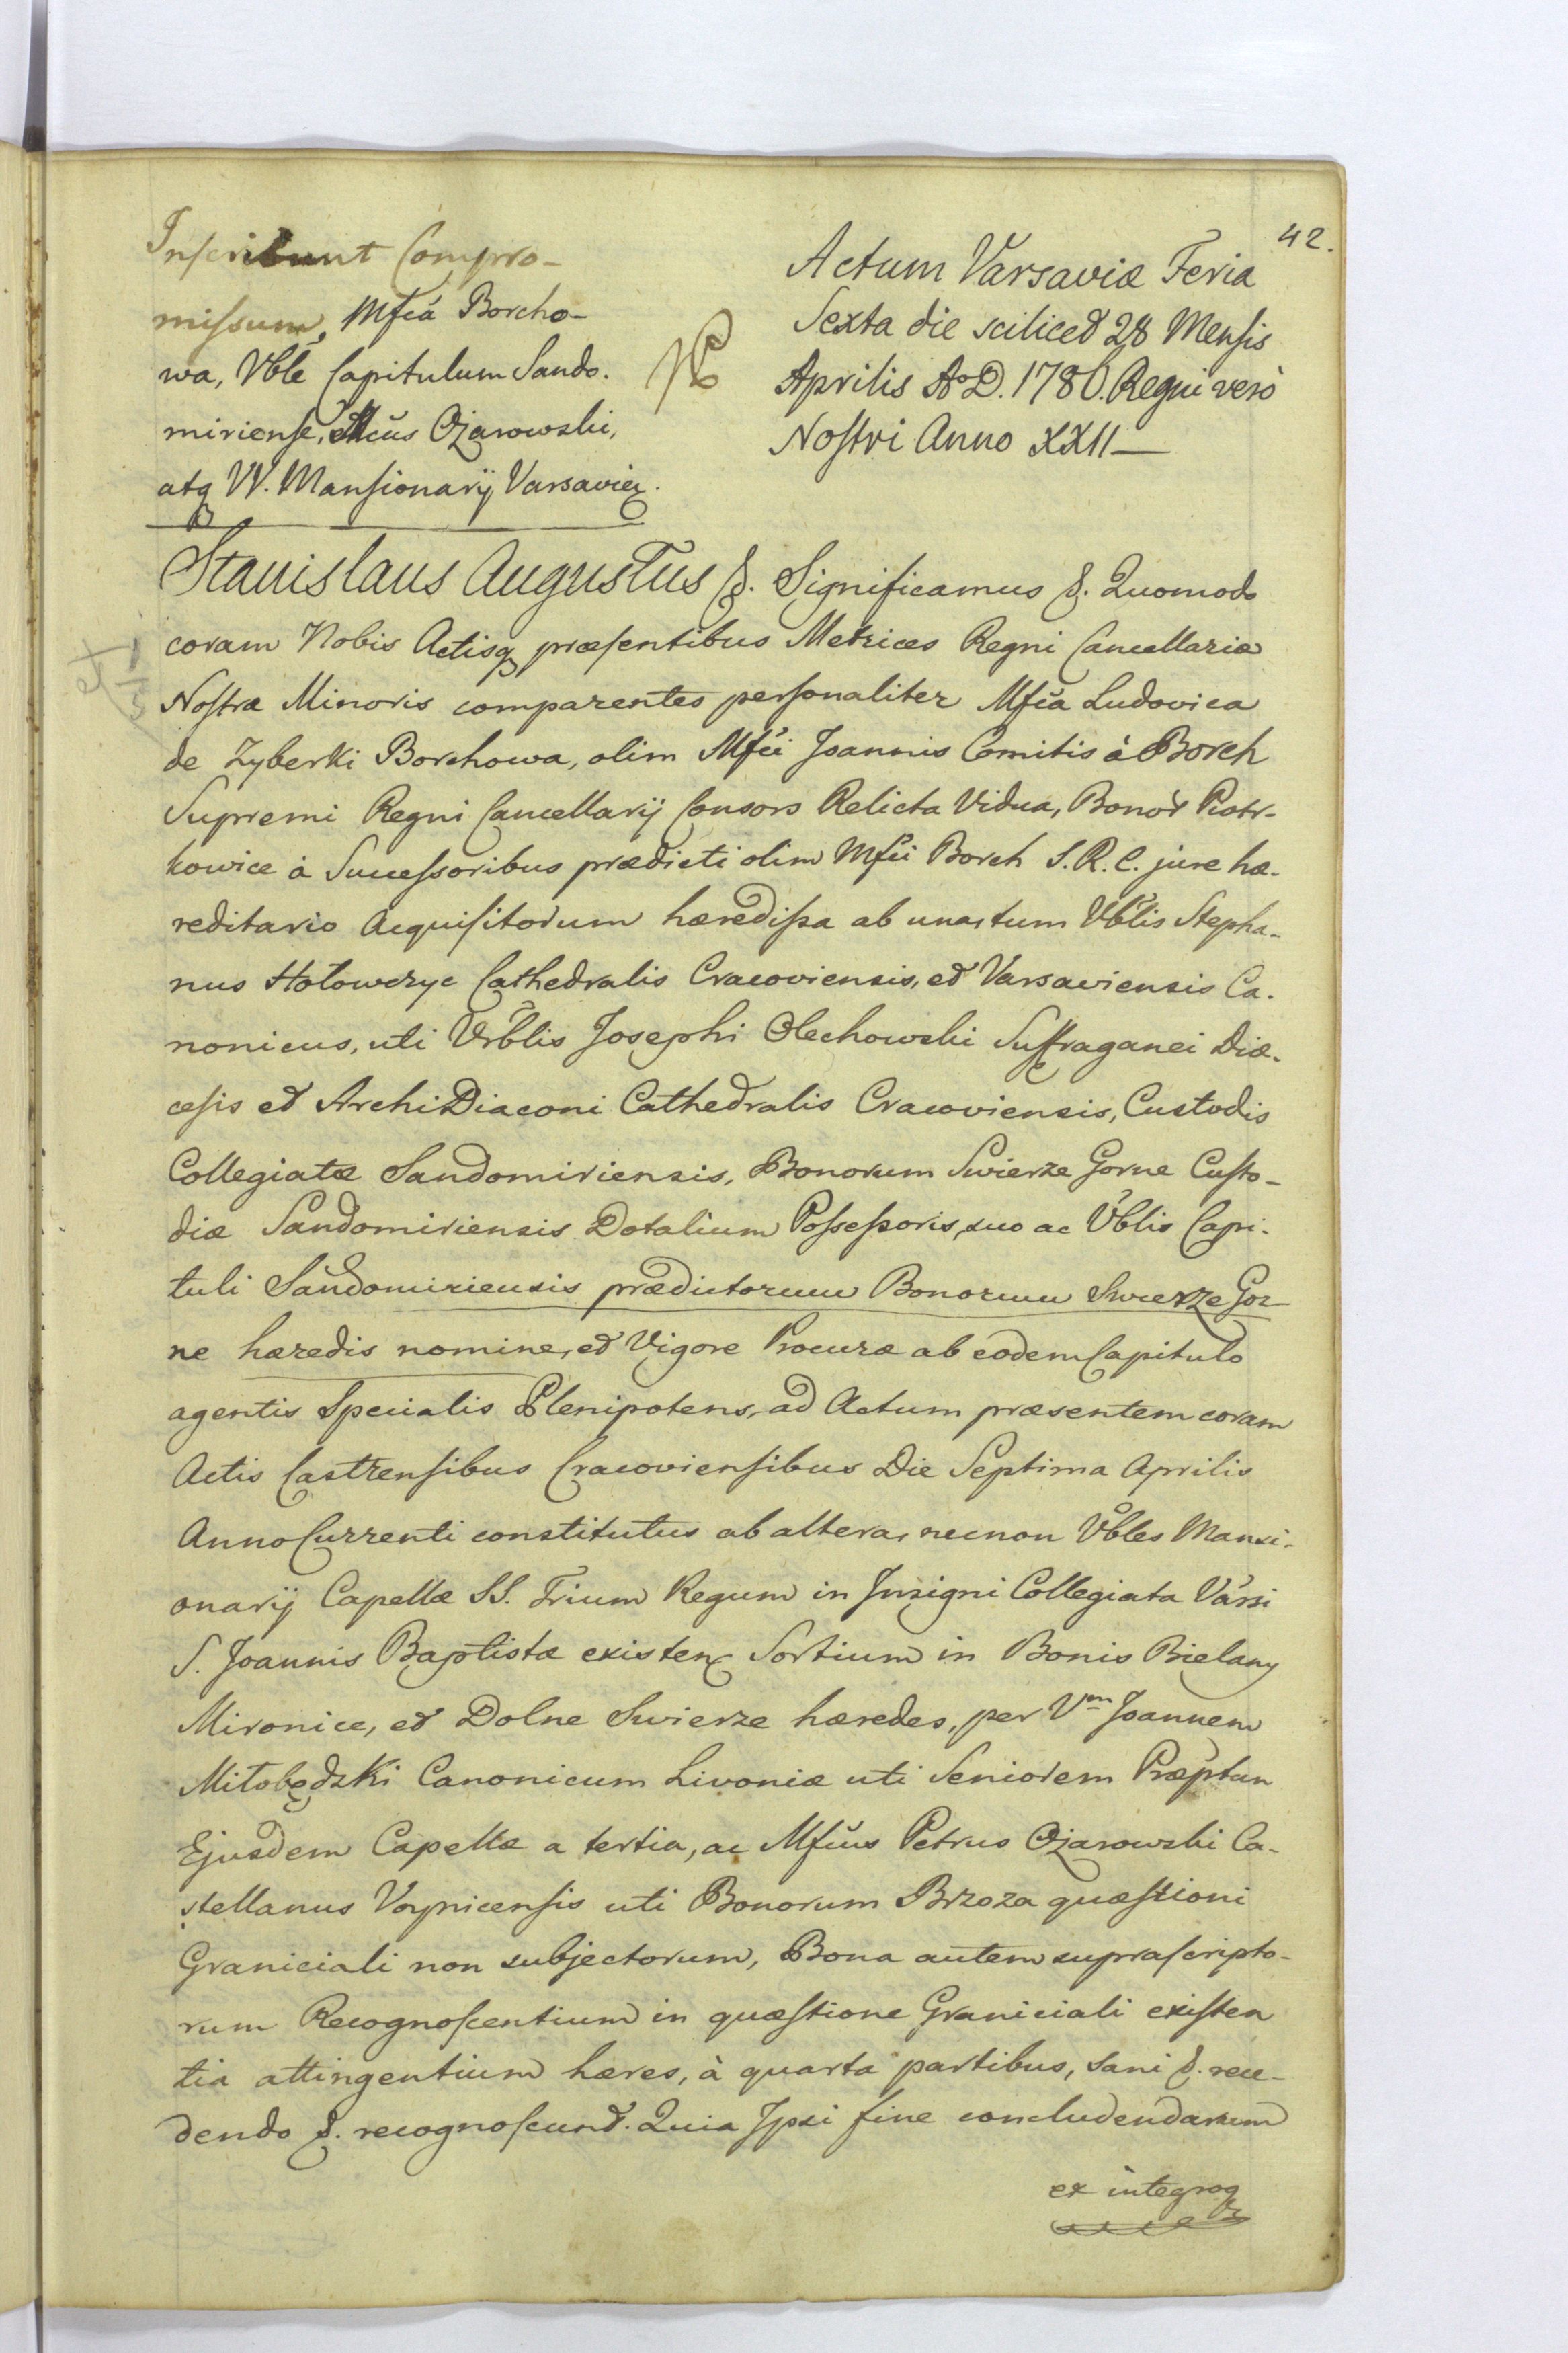 42.
Inscribunt Compro-
missum, Mfca Borcho-
wa, Vble Capitulum Sando-
miriense, Mcus Ożarowski,
atq VV. Mansionarij Varsavien.
Actum Varsaviæ Feria
Sexta die scilicet 28 Mensis
Aprilis Ao D. 1786. Regni verò
Nostri Anno XXII—
Stanislaus Augustus &. Significamus &. Quomodo
coram Nobis Actisq præsentibus Metrices Regni Cancellariæ
Nostræ Minoris comparentes personaliter Mfca Ludovica
de Zyberki Borchowa, olim Mfci Joannis Comitis à Borch
Supremi Regni Cancellarij Consors Relicta Vidua, Bonor Piotr-
kowice à Successoribus prædicti olim Mfci Borch S. R. C. jure hæ-
reditario Acquisitorum hæredissa ab una, tum Vblis Stepha-
nus Hołowczyc Cathedralis Cracoviensis, et Varsaviensis Ca-
nonicus, uti Vrblis Josephi Olechowski Suffraganei Diæ-
cesis et ArchiDiaconi Cathedralis Cracoviensis, Custodis
Collegiatæ Sandomiriensis, Bonorum Swierze Gorne Custo-
diæ Sandomiriensis Dotalium Possessoris, suo ac Vblis Capi-
tuli Sandomiriensis prædictorum Bonorum Swierze Gor-
ne hæredis nomine, et Vigore Procuræ ab eodem Capitulo
agentis Specialis Plenipotens, ad Actum præsentem coram
Actis Castrensibus Cracoviensibus Die Septima Aprilis
Anno Currenti constitutus ab altera, necnon Vbles Mansi-
onarij Capellæ SS. Trium Regum in Insigni Collegiata Varsi
S. Joannis Baptistæ existen Sortium in Bonis Bielany
Mironice, et Dolne Swierze hæredes, per Vm Joannem
Miłobędzki Canonicum Livoniæ uti Seniorem Præptum
Ejusdem Capellæ a tertia, ac Mfcus Petrus Ożarowski Ca-
stellanus Voynicensis uti Bonorum Brzoza quæstioni
Graniciali non subjectorum, Bona autem suprascripto-
rum Recognoscentium in quæstione Graniciali existen
tia attingentium hæres, à quarta partibus, sani &. rece-
dendo &. recognoscund. Quia Ipsi fine concludendarum
ex integroq